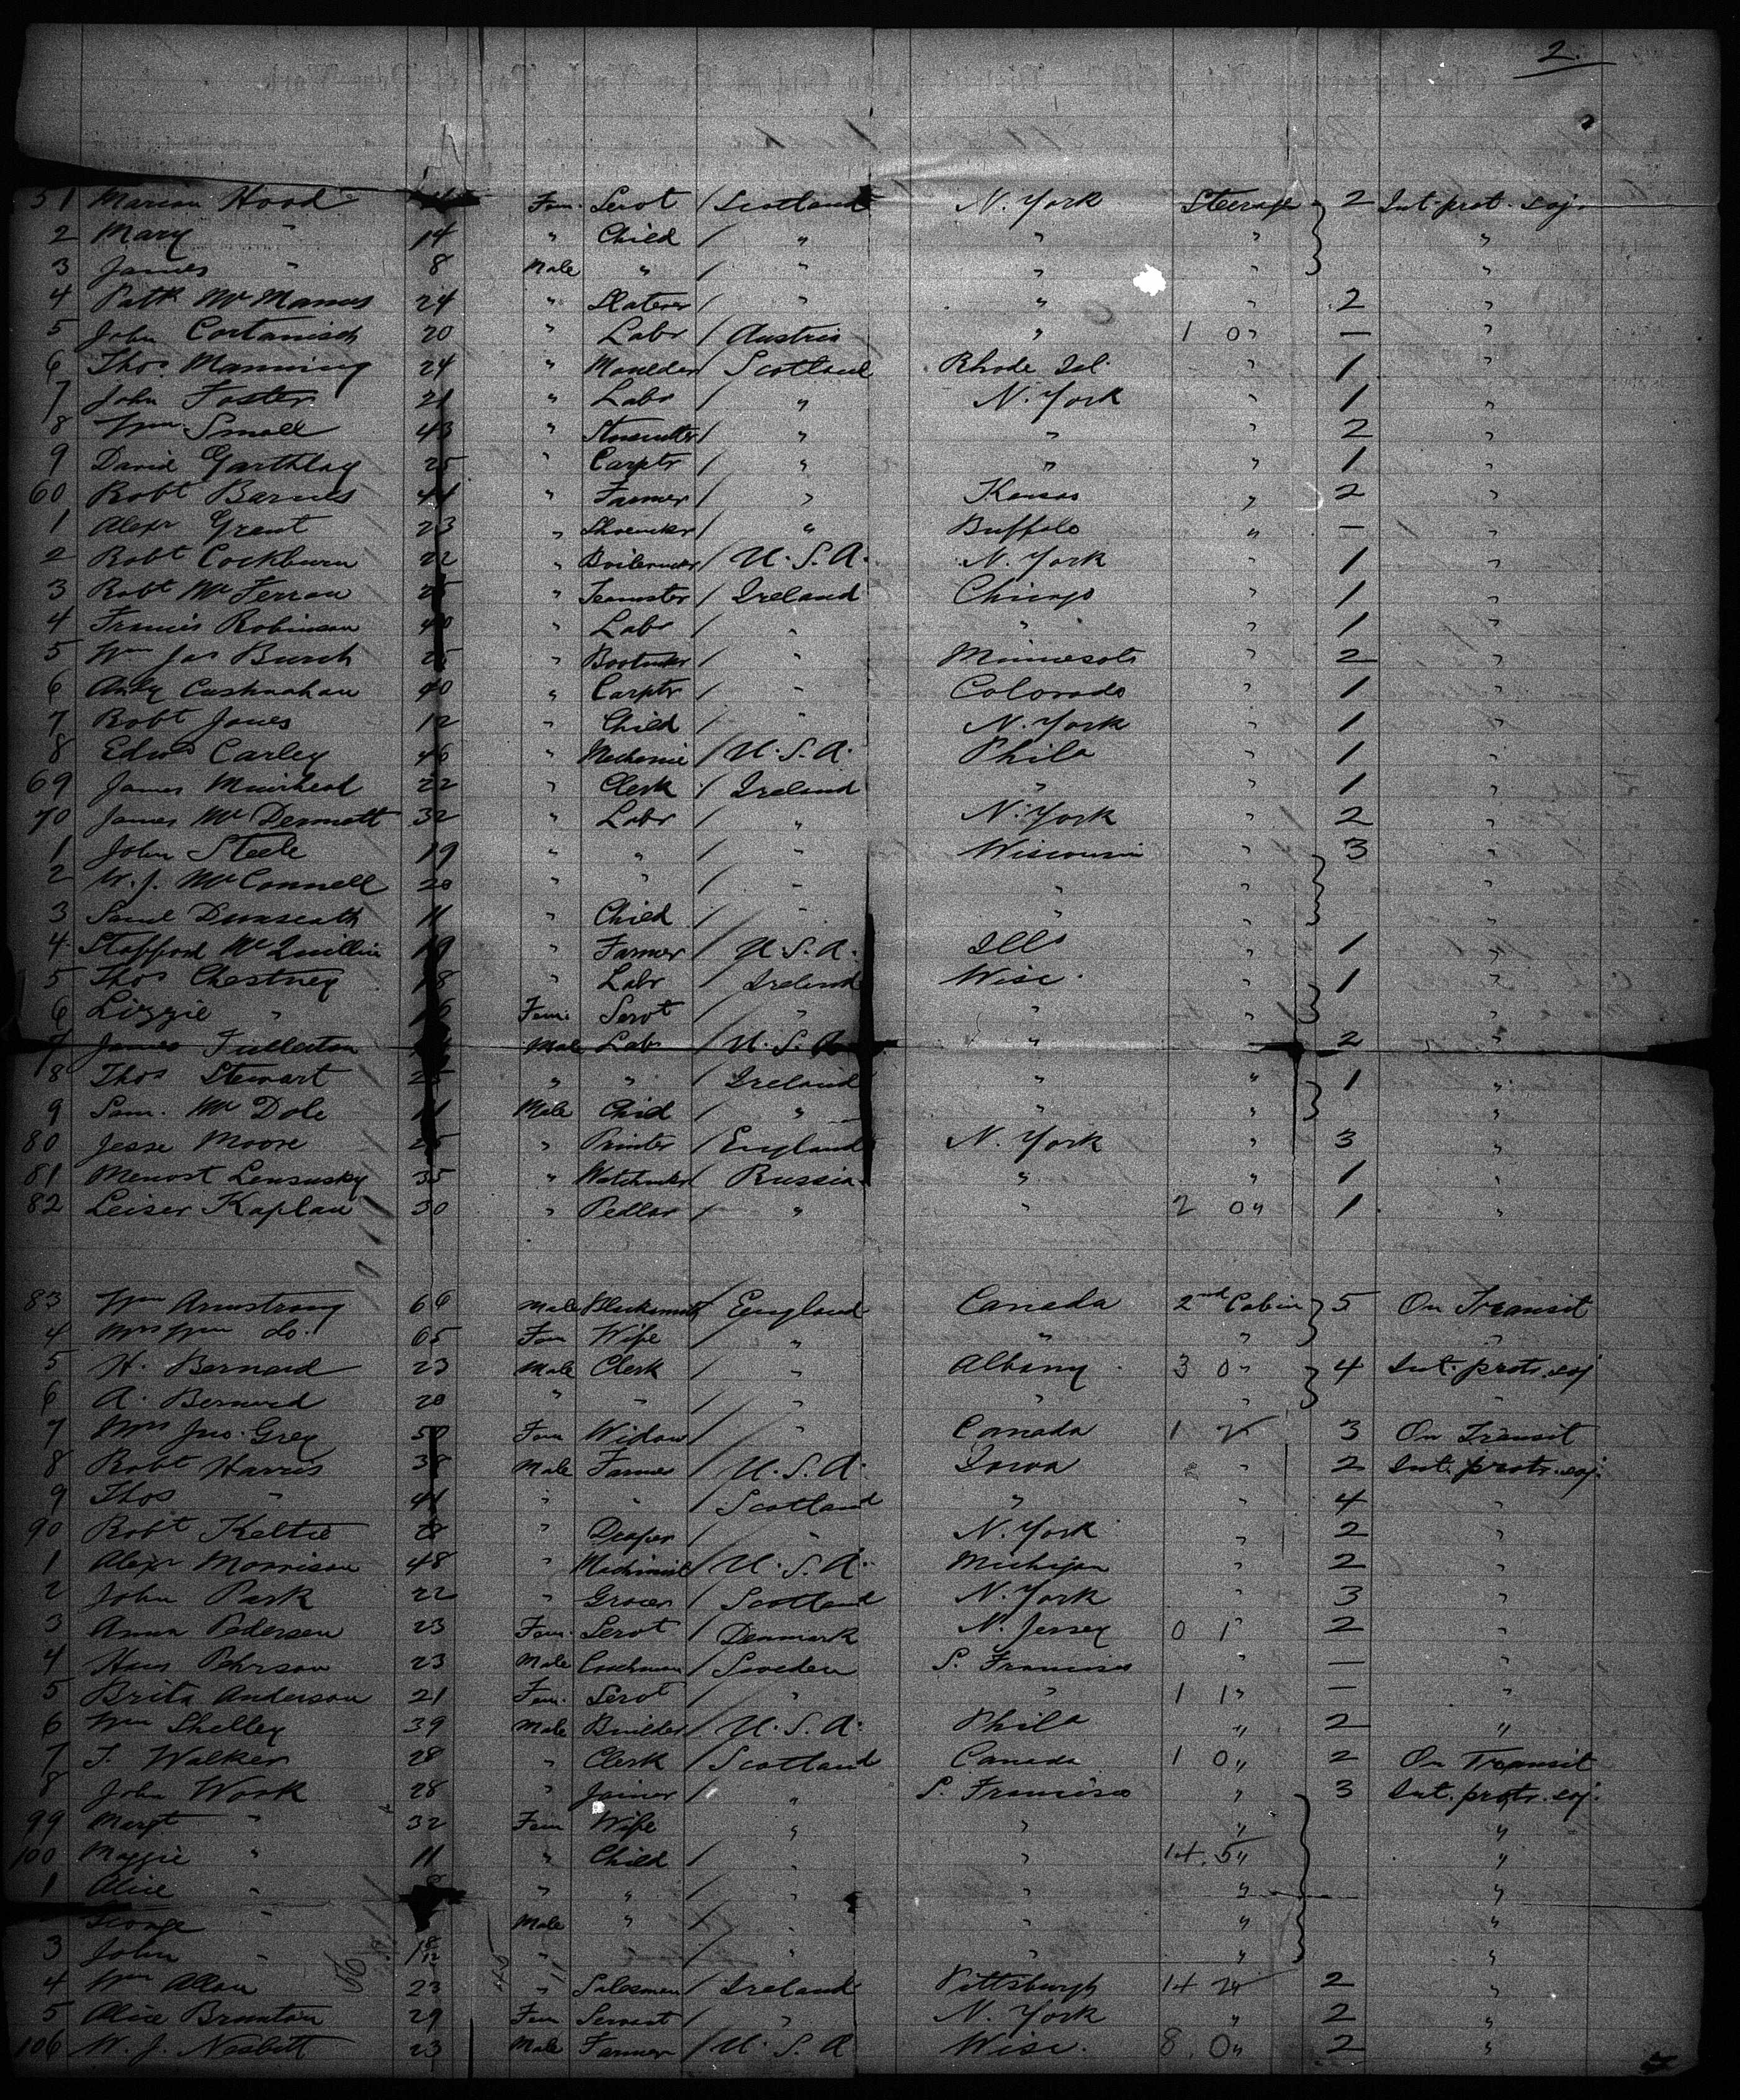 2.
51 Marion Hood Fem. Servt / Scotland N. York Steerage 2 Int. prot. soj.
2 Mary " 14 " Child / " " " "
3 James " 8 Male " / " " " "
4 Patk McManus 24 " Slater / " " " 2 "
5 John Cortanisch 20 " Labr / Austria " 1 0 " — "
6 Thos. Manning 24 " Moulder / Scotland Rhode Isl. " 1 "
7 John Foster 21 " Labr / " N. York " 1 "
8 Wm Small 43 " Stonecutter / " " " 2 "
9 David Garthlay 25 " Carptr / " " " 1 "
60 Robt Barnes 44 " Farmer / " Kansas " 2 "
1 Alexr Grant 23 " Shoemkr / " Buffalo " — "
2 Robt Cockburn 22 " Boilermkr / U.S.A. N. York " 1 "
3 Robt McFerran 25 " Teamster / Ireland Chicago " 1 "
4 Francis Robinson 40 " Labr / " " " 1 "
5 Wm Jas Burch 25 " Bootmkr / " Minnesota " 2 "
6 Andy Cushnahan 40 " Carptr / " Colorado " 1 "
7 Robt Jones 12 " Child / " N. York " 1 "
8 Edwd Carley 46 " Mechanic / U.S.A. Phila " 1 "
69 James Muirhead 22 " Clerk / Ireland " " 1 "
70 James McDermott 32 " Labr / " N. York " 2 "
1 John Steele 19 " " / " Wisconsin " 3 "
2 W. J. McConnell 20 " " / " " " "
3 Saml Dunseath 11 " Child / " " " "
4 Stafford McQuillin 19 " Farmer / U.S.A. Ills " 1 "
5 Thos Chestney 18 " Labr / Ireland Wisc. " 1 "
6 Lizzie " 16 Fem. Servt / " " " "
7 James Fullerton Male Labr / U.S.A " " 2 "
8 Thos Stewart 25 " " / Ireland " " 1 "
9 Sam. McDole 11 Male Chid / " " " "
80 Jesse Moore 25 " Printer / England N. York " 3 "
81 Menost Lensusky 35 " Watchmkr / Russia " " 1 "
82 Leiser Kaplan 30 " Pedlar / " " 2 0 " 1 "
83 Wm Armstrong 66 Male Blacksmith / England Canada 2nd Cabin 5 On Transit
4 Mrs Wm do. 65 Fem Wife / " " " "
5 H. Bernard 23 Male Clerk / " Albany 3 0 " 4 Int. protr. soj
6 A. Bernard 20 " " / " " " "
7 Mrs Jno. Grey 50 Fem Widow / " Canada 1 2 3 On Transit
8 Robt Harris 38 Male Farmer / U.S.A. Iowa " 2 Int. protr. soj.
9 Thos " 41 " " / Scotland " " 4 "
90 Robt Keltie " Draper / " N. York " 2 "
1 Alexr Morrison 48 " Machinist / U.S.A. Michigan " 2 "
2 John Park 22 " Grocer / Scotland N. York " 3 "
3 Anna Pedersen 23 Fem. Servt / Denmark N. Jersey 0 1 " 2 "
4 Hans Pehrson 23 Male Coachman / Sweden S. Francisco " — "
5 Brita Anderson 21 Fem. Servt / " " 1 1 " — "
6 Wm Shelley 39 Male Builder / U.S.A. Phila " 2 "
7 T. Walker 28 " Clerk / Scotland Canada 1 0 " 2 On Transit
8 John Work 28 " Joiner / " S. Francisco " 3 Int. protr. soj.
99 Margt " 32 Fem Wife / " " " "
100 Maggie " 11 " Child / " " 14.5 " "
1 Alice " " " / " " " "
George " Male " / " " " "
3 John " 1 8/12 " / " " " "
4 Wm Allan 23 " Salesman / Ireland Pittsburgh 14 2 2 "
5 Alice Brunton 29 Fem Servant / " N. York " 2 "
106 W. J. Nesbitt 23 Male Farmer / U.S.A Wisc. 8.0 " 2 "